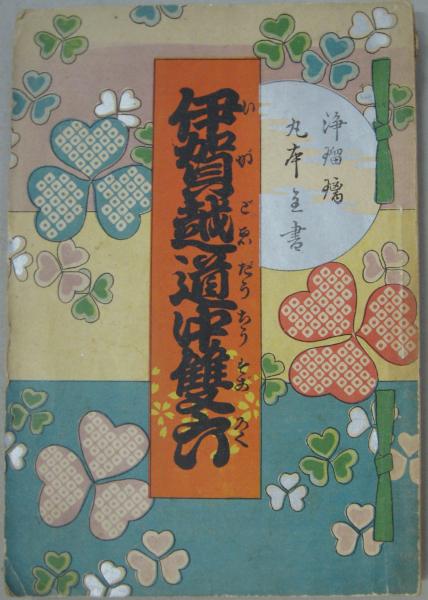 浄瑠璃
丸本全書
伊賀越道中雙六
いがごゑだうちうすごろく